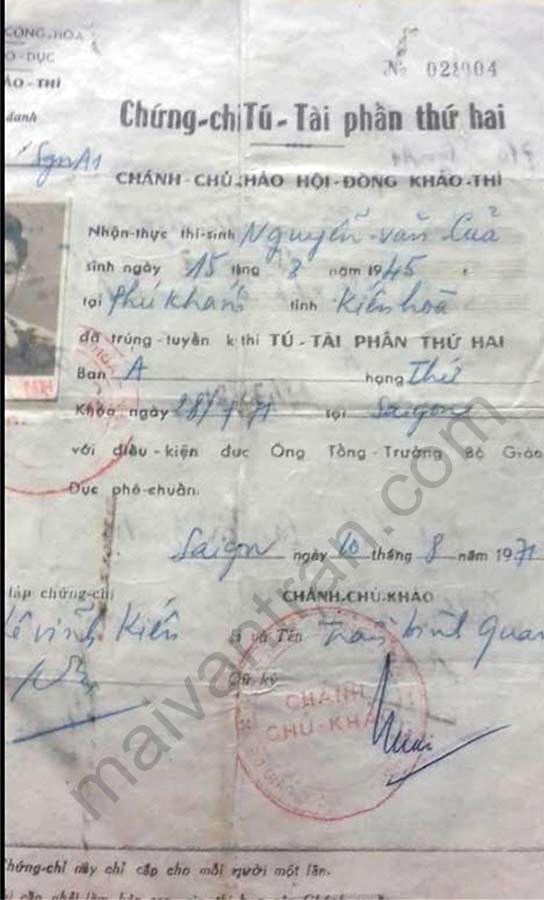 CỘNG-HÒA
-DỤC
ẢO-THÍ
danh
SgnA1
№ 021904
Chứng-chỉ Tú-Tài phần thứ hai
CHÁNH-CHỦ-KHẢO HỘI-ĐỒNG KHẢO-THÍ
Nhận-thực thí-sinh Nguyễn-văn-Cuả
sinh ngày 15 tháng 3 năm 1945
tại Phú Khánh tỉnh Kiến hoà
đã trúng-tuyển kỳ thi TÚ-TÀI PHẦN THỨ HAI
Ban A hạng Thứ
Khóa ngày 28/7/71 tại Saigon
với điều-kiện được Ông Tổng-Trưởng Bộ Giáo
Dục phê-chuẩn.
Saigon ngày 10 tháng 8 năm 1971
lập chứng-chỉ CHÁNH-CHỦ-KHẢO
Lê vĩnh Kiến Họ và Tên Trần
Chữ ký
CHÁNH
CHỦ-KHẢO
maivantran.com
Chứng-chỉ này chỉ cấp cho mỗi người một lần.